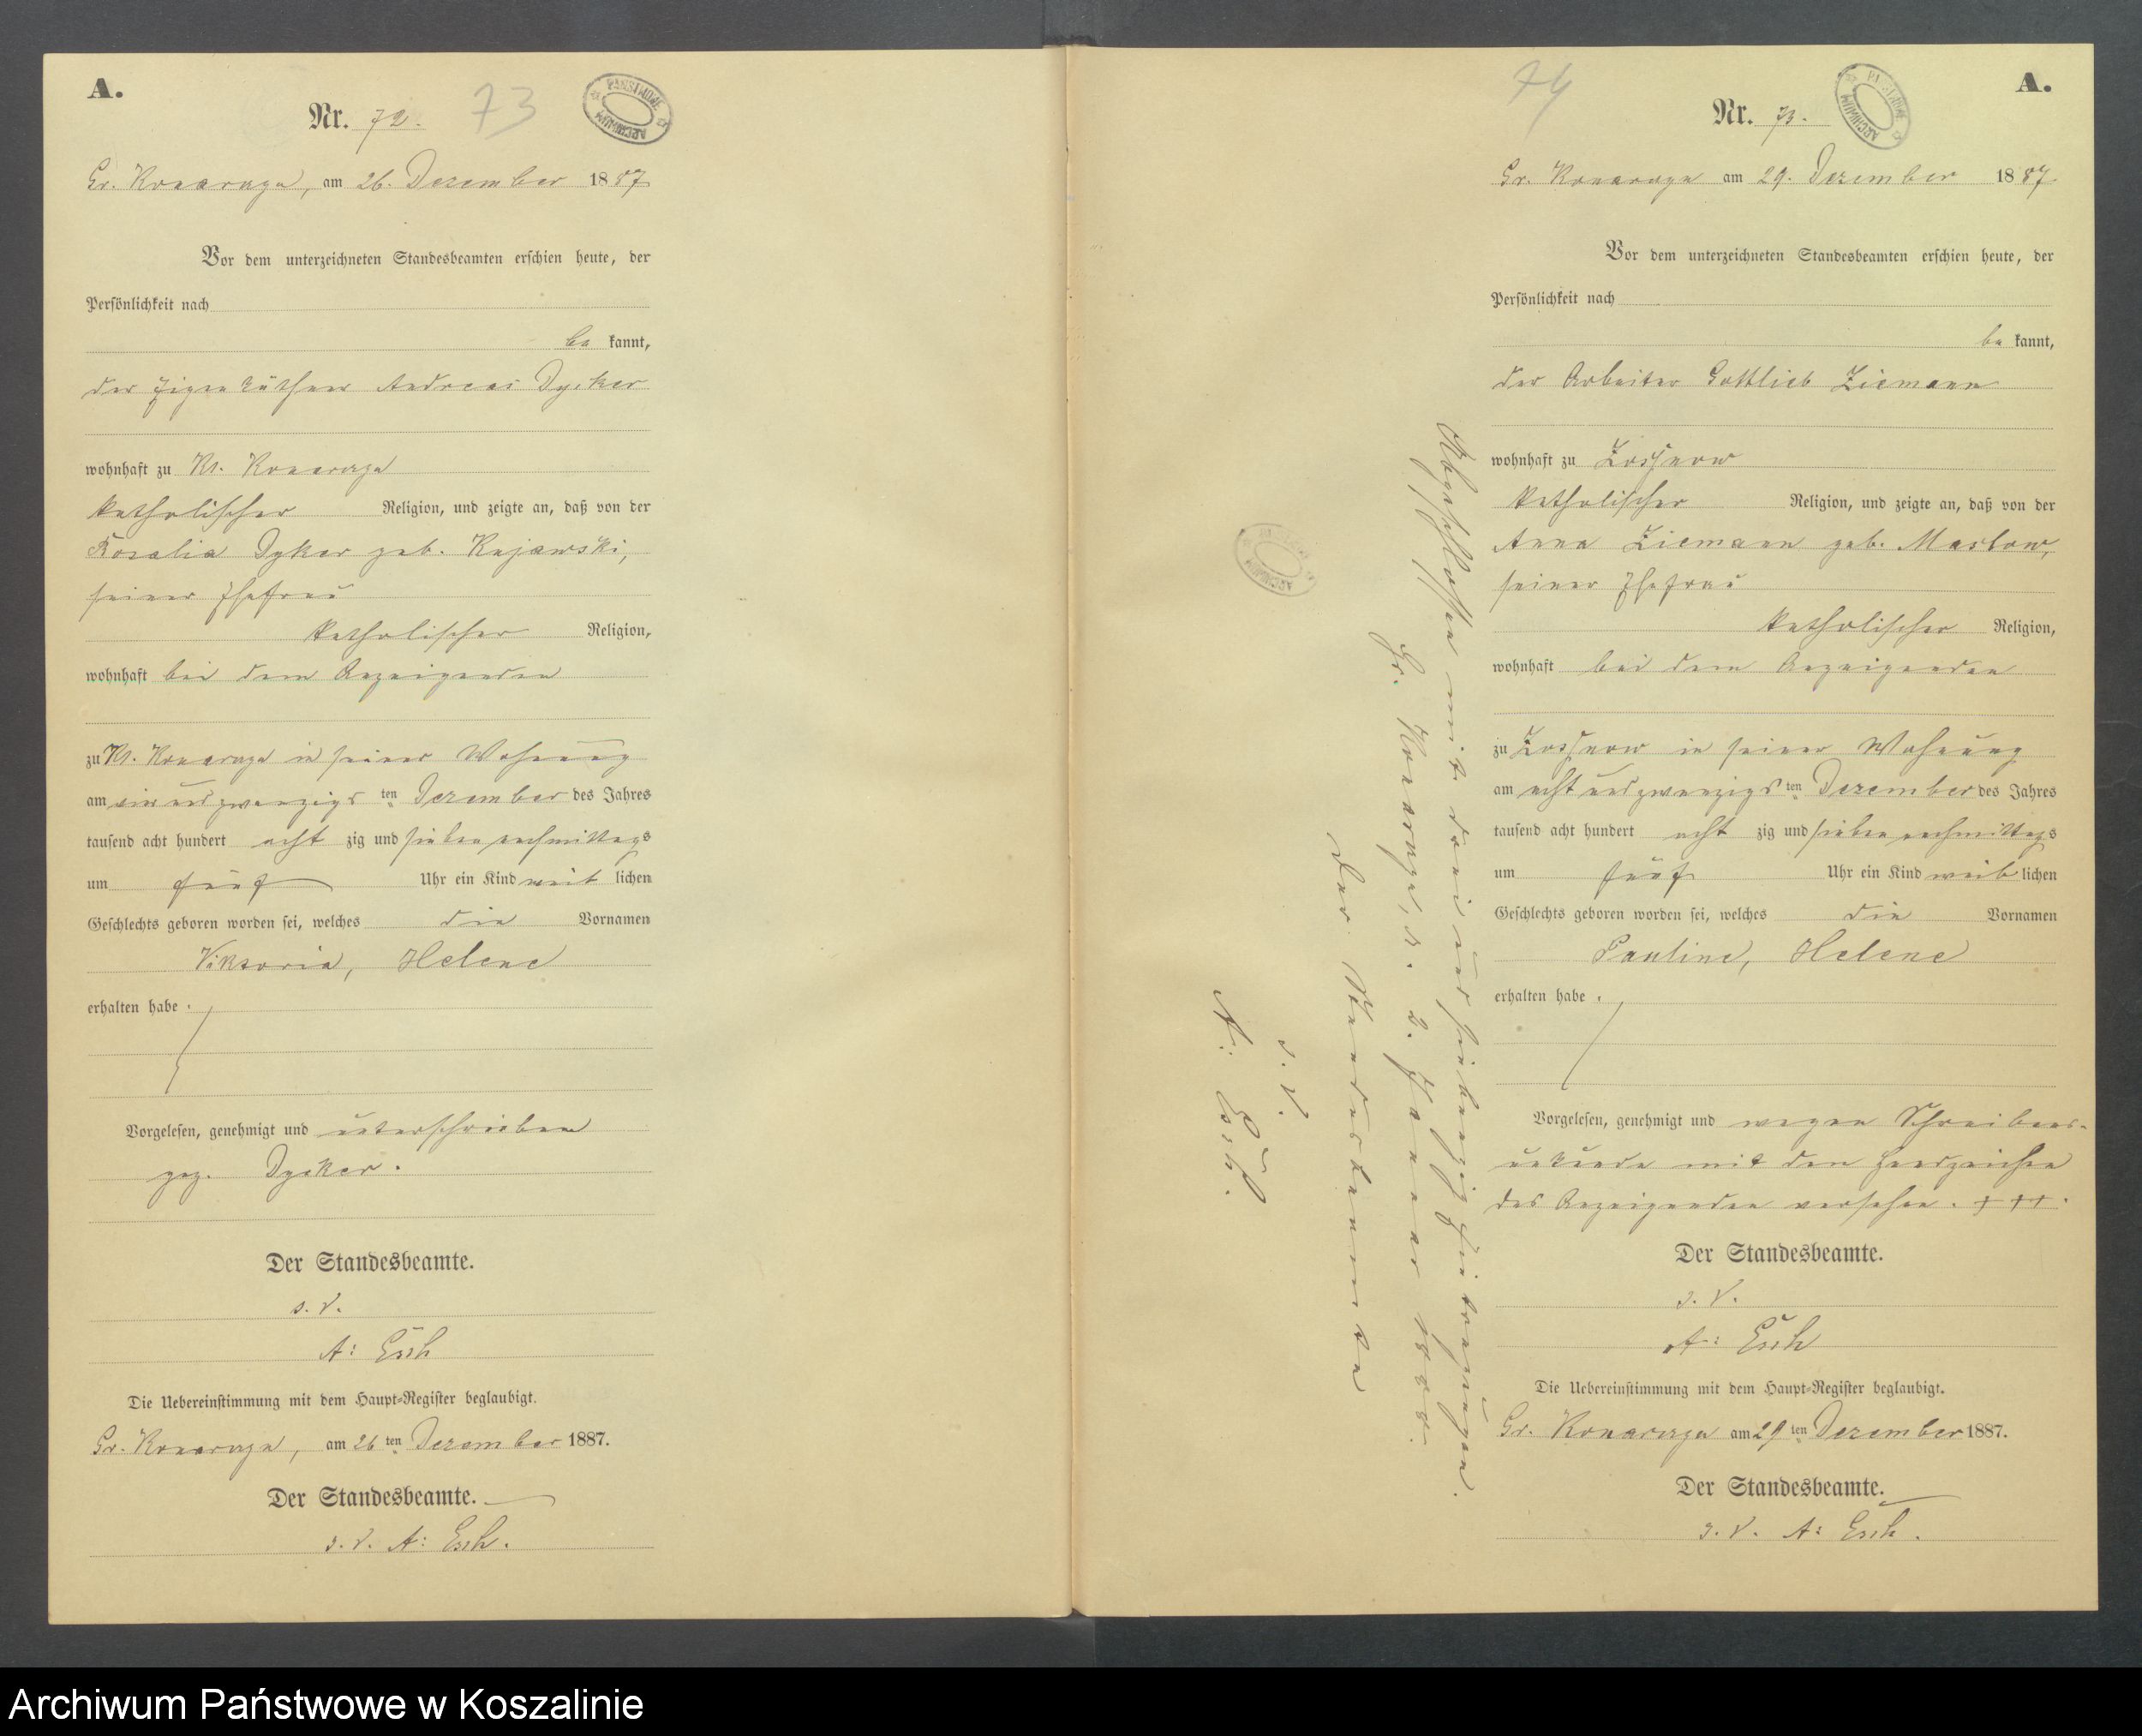 A.
Nr. 72.
73
PAŃSTWOWE
ARCHIWUM
Gr. Konarczyn, am 26. Dezember 1887
Vor dem unterzeichneten Standesbeamten erschien heute, der
Persönlichkeit nach
be kannt,
der Eigenkäthner Andreas Dycker
wohnhaft zu Kl. Konarczyn
katholischer Religion, und zeigte an, daß von der
Rosalia Dyker geb. Kujawski,
seiner Ehefrau
katholischer Religion,
wohnhaft bei dem Anzeigenden
zu Kl. Konarczyn in seiner Wohnung
am vierundzwanzigsten Dezember des Jahres
tausend acht hundert acht zig und sieben nachmittags
um fünf Uhr ein Kind weib lichen
Geschlechts geboren worden sei, welches die Vornamen
Viktoria, Helene
erhalten habe.
Vorgelesen, genehmigt und unterschrieben
gez. Dycker.
Der Standesbeamte.
i. V.
A: Esch
Die Uebereinstimmung mit dem Haupt-Register beglaubigt.
Gr. Konarczyn, am 26 ten Dezember 1887.
Der Standesbeamte.
i. V. A: Esch.
Abgeschlossen mit drei und siebenzig Eintragungen.
Gr. Konarczyn, d. 2. Januar 1888.
Der Standesbeamte
i. V.
A: Esch.
PAŃSTWOWE
ARCHIWUM
74
A.
Nr. 73.
PAŃSTWOWE
ARCHIWUM
Gr. Konarczyn am 29. Dezember 1887
Vor dem unterzeichneten Standesbeamten erschien heute, der
Persönlichkeit nach
be kannt,
der Arbeiter Gottlieb Ziemann
wohnhaft zu Zossnow
katholischer Religion, und zeigte an, daß von der
Anna Ziemann geb. Maslow,
seiner Ehefrau
katholischer Religion,
wohnhaft bei dem Anzeigenden
zu Zossnow in seiner Wohnung
am acht und zwanzigsten Dezember des Jahres
tausend acht hundert acht zig und sieben nachmittags
um fünf Uhr ein Kind weib lichen
Geschlechts geboren worden sei, welches die Vornamen
Pauline, Helene
erhalten habe.
Vorgelesen, genehmigt und wegen Schreibens-
unkunde mit den Handzeichen
des Anzeigenden versehen. +++.
Der Standesbeamte.
i. V.
A: Esch
Die Uebereinstimmung mit dem Haupt-Register beglaubigt.
Gr. Konarczyn am 29 ten Dezember 1887.
Der Standesbeamte.
i. V. A: Esch.
Archiwum Państwowe w Koszalinie